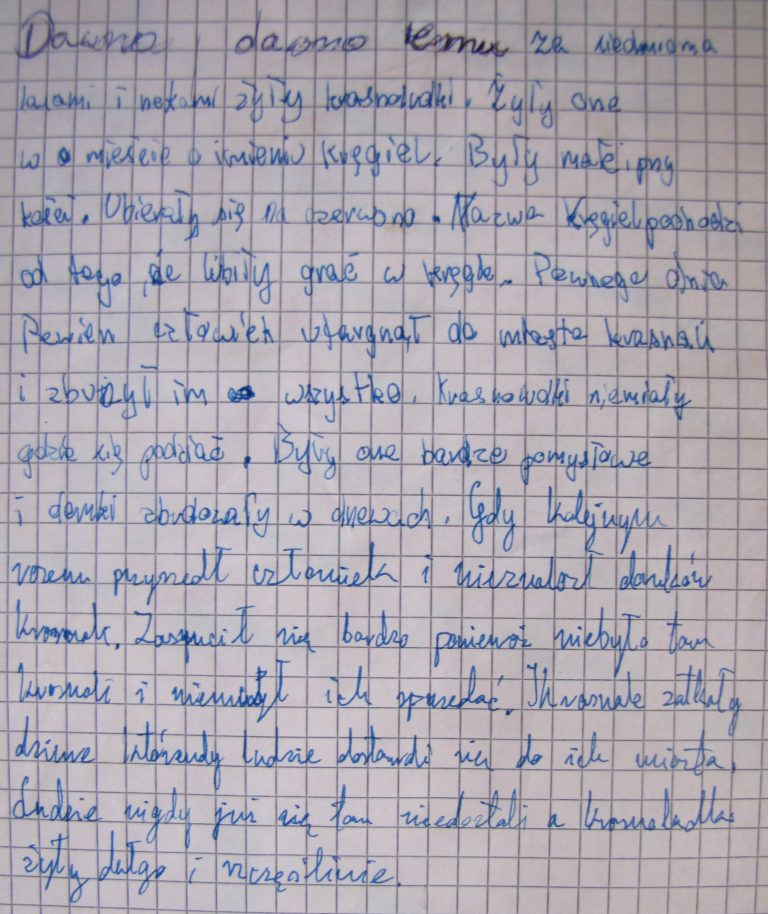 Dawno, dawno temu za siedmioma
lasami i rzekami żyły krasnoludki. Żyły one
w mieście o imieniu Kręgiel. Były małe i pry
kate. Ubierały się na czerwono. Nazwa Kręgiel pochodzi
od tego że lubiły grać w kręgle. Pewnego dnia
Pewien człowiek wtargnął do miasta krasnali
i zburzył im wszystko. Krasnowdki niemiały
gdzie się podziać. Były one bardzo pomysłowe
i domki zbudowały w drzewach. Gdy kolejnym
razem przyszedł człowiek i nieznalazł domków
krasnali. Zasmucił się bardzo ponieważ niebyło tam
krasnali i niemógł ich sprzedać. Krasnale zatkały
dziure którendy ludzie dostawali się do ich miasta.
Ludzie nigdy już się tam niedostali a
żyły długo i szczęśliwie.